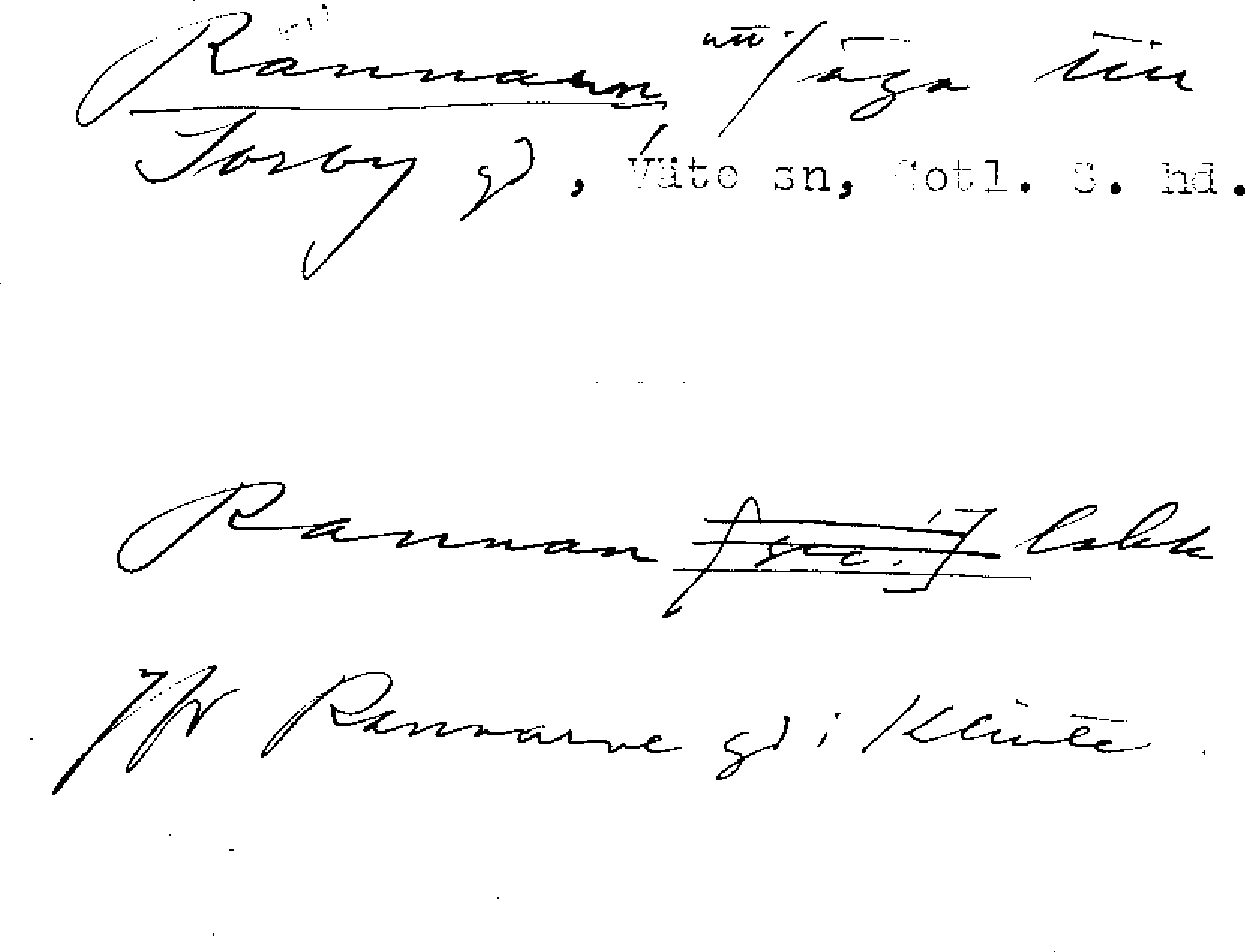 Rannarn äga till
Torby gd, Väte sn, Gotl. S. hd.
Rannan lokk
Jfr Rannarve gd i Klinte.